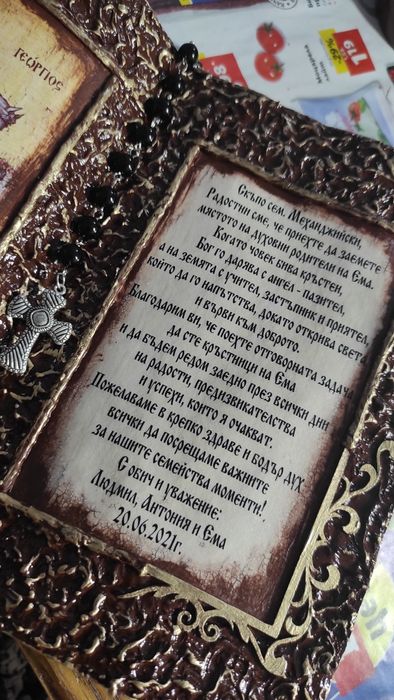 ГЕОРГIОС
119
-29%
Скъпо сем. Механджийски,
Радостни сме, че приехте да заемете
мястото на духовни родители на Ема.
Когато човек бива кръстен,
Бог го дарява с ангел - пазител,
а на земята с учител, застъпник и приятел,
който да го напътства, докато открива света
и върви към доброто.
Благодарим ви, че поехте отговорната задача
да сте кръстници на Ема
и да бъдем редом заедно през всички дни
на радости, предизвикателства
и успехи, които я очакват.
Пожелаваме в крепко здраве и бодър дух
всички да посрещаме важните
за нашите семейства моменти!
С обич и уважение:
Людмил, Антония и Ема
20.06.2021г.